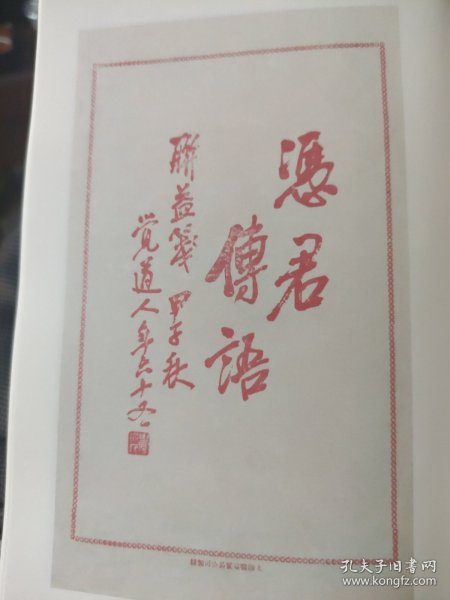 憑君
傳語
聯益箋 甲子秋
覚道人年六十又二
孔夫子旧书网
www.kongfz.com